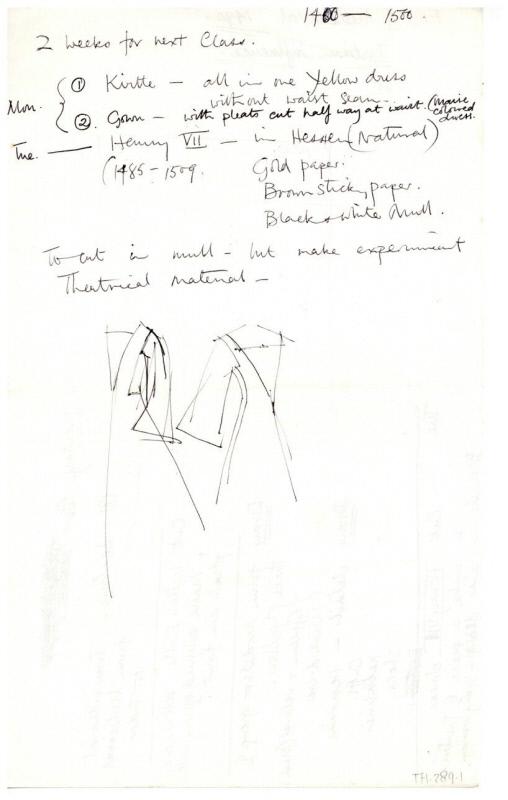 1400 — 1500.
2 weeks for next Class.
Mon. ① Kirtle — all in one Yellow dress
without waist seam —
② Gown — with pleats cut half way at waist. (Mauve coloured dress.
Tue. — Henry VII — in Hessen (Natural)
(1485 – 1509.
Gold paper.
Brown sticky paper.
Black & white Mull.
To cut in mull – but make experiment
Theatrical material —
TH.289.1